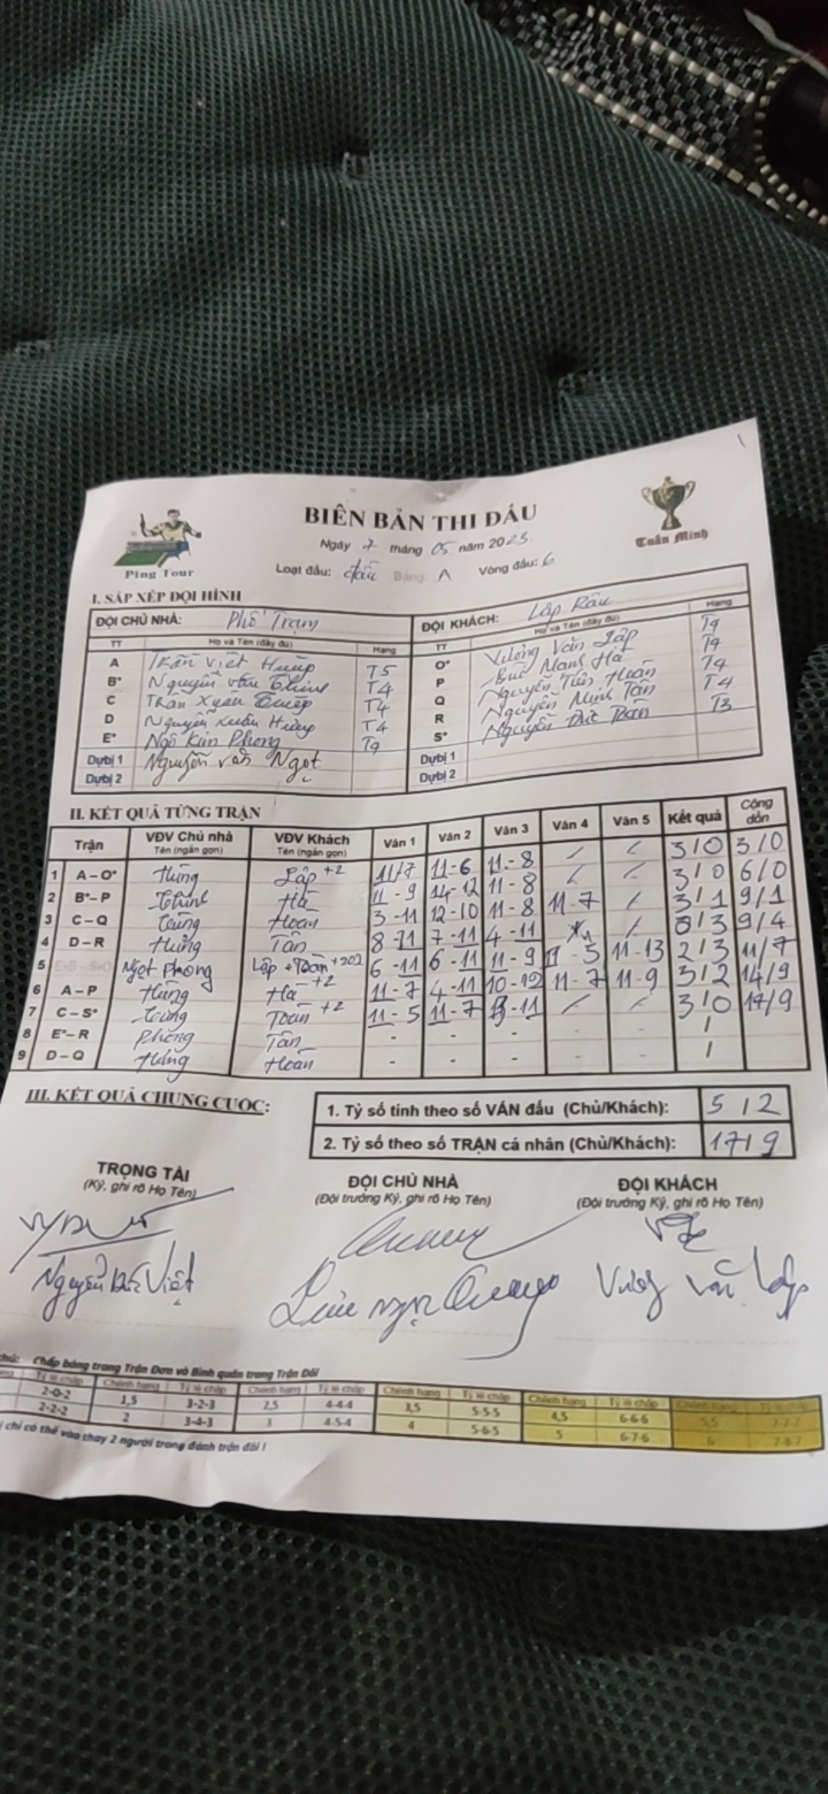 BIÊN BẢN THI ĐẤU
Ping Tour
Tuấn Minh
Ngày 7 tháng 05 năm 2023
Loạt đấu: đấu Bảng: A Vòng đấu: 6
I. SẮP XẾP ĐỘI HÌNH
ĐỘI CHỦ NHÀ: Phố Trạm ĐỘI KHÁCH: Lập Râu
TT Họ và Tên (đầy đủ) Hạng TT Họ và Tên (đầy đủ) Hạng
A Trần Việt Hùng T5 O* Vương Văn Lập T9
B* Nguyễn Văn T4 P Bùi Mạnh Hà T9
C Trần Xuân T4 Q Nguyễn Tiến Hoàn T4
D Nguyễn Xuân Hùng T4 R Nguyễn Minh Tân T4
E* Ngô Kim Phong T9 S* Nguyễn Đức T3
Dự bị 1 Nguyễn Văn Ngọt Dự bị 1
Dự bị 2 Dự bị 2
II. KẾT QUẢ TỪNG TRẬN
Trận VĐV Chủ nhà Tên (ngắn gọn) VĐV Khách Tên (ngắn gọn) Ván 1 Ván 2 Ván 3 Ván 4 Ván 5 Kết quả Cộng dồn
1 A – O* Hùng Lập +2 11/7 11-6 11-8 / / 3/0 3/0
2 B* – P Hà 11-9 14-12 11-8 / / 3/0 6/0
3 C – Q Hoàn 3-11 12-10 11-8 11-7 / 3/1 9/1
4 D – R Hùng Tân 8-11 7-11 4-11 / 0/3 9/4
5 Ngọt Phong Lập + Toàn 6-11 6-11 11-9 11-5 11-13 2/3 11/7
6 A – P Hùng Hà +2 11-7 4-11 10-12 11-7 11-9 3/2 14/9
7 C – S* Toàn +2 11-5 11-7 / / 3/0 17/9
8 E* – R Phong Tân - - - - - /
9 D – Q Hùng Hoàn - - - - - /
III. KẾT QUẢ CHUNG CUỘC:
1. Tỷ số tính theo số VÁN đấu (Chủ/Khách): 5/2
2. Tỷ số theo số TRẬN cá nhân (Chủ/Khách): 17/9
TRỌNG TÀI ĐỘI CHỦ NHÀ ĐỘI KHÁCH
(Ký, ghi rõ Họ Tên) (Đội trưởng Ký, ghi rõ Họ Tên) (Đội trưởng Ký, ghi rõ Họ Tên)
Nguyễn Đức Việt Lưu Ngọc Quang Vương Văn Lập
chú: Chấp bóng trong Trận Đơn và Bình quân trong Trận Đôi
Tỷ lệ chấp Chênh hạng Tỷ lệ chấp Chênh hạng Tỷ lệ chấp Chênh hạng Tỷ lệ chấp Chênh hạng Tỷ lệ chấp Chênh hạng Tỷ lệ chấp
2-0-2 1,5 3-2-3 2,5 4-4-4 3,5 5-5-5 4,5 6-6-6 5,5 7-7-7
2-2-2 2 3-4-3 3 4-5-4 4 5-6-5 5 6-7-6 6 7-8-7
chỉ có thể vào thay 2 người trong đánh trận đôi !